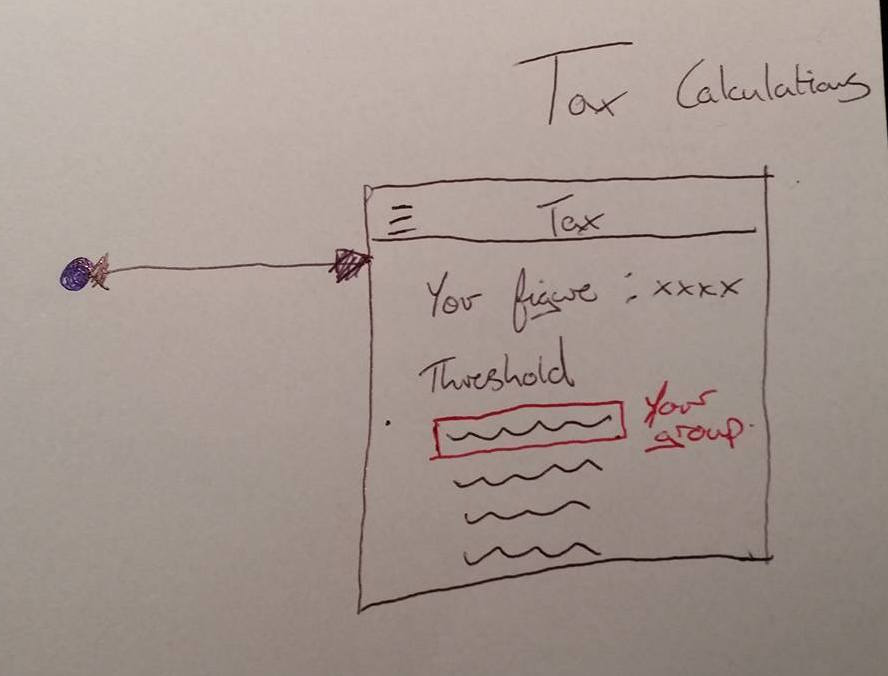 Tax Calculations
Tax
Your figure : xxxx
Threshold
Your
group.